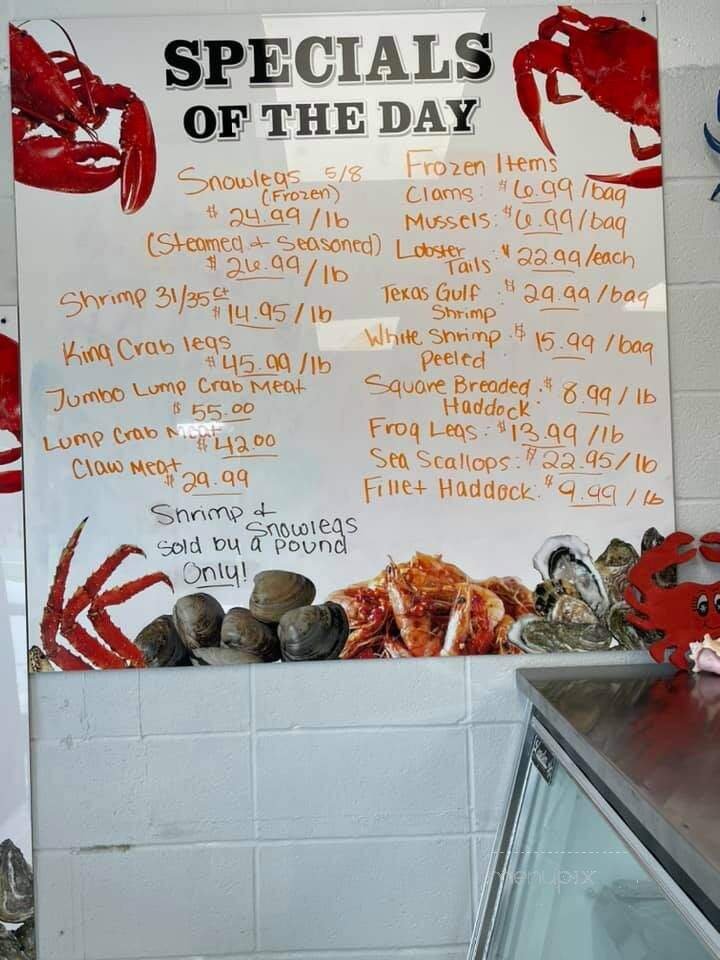 SPECIALS
OF THE DAY
Snowlegs 5/8
(Frozen)
$ 24.99/lb
(Steamed & Seasoned)
$ 26.99/lb
Shrimp 31/35 ct
$ 14.95/lb
King Crab legs
$ 45.99/lb
Jumbo Lump Crab Meat
$ 55.00
Lump Crab Meat
$ 42.00
Claw Meat
$ 29.99
Shrimp &
Snowlegs
Sold by a pound
Only!
Frozen Items
Clams: $ 6.99/bag
Mussels: $ 6.99/bag
Lobster
Tails $ 22.99/each
Texas Gulf
Shrimp $ 29.99/bag
White Shrimp
Peeled $ 15.99/bag
Square Breaded
Haddock $ 8.99/lb
Frog Legs: $ 13.99/lb
Sea Scallops: $ 22.95/lb
Fillet Haddock: $ 9.99/lb
menupix